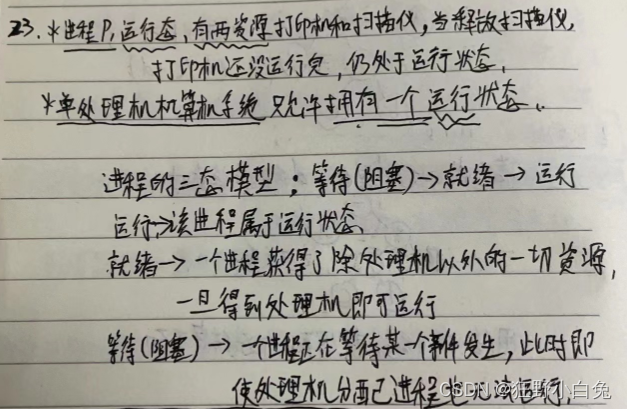 23.*进程P,运行态,有两资源打印机和扫描仪,当释放扫描仪,
打印机还没运行完,仍处于运行状态。
*单处理机机算机系统只允许拥有一个运行状态。
进程的三态模型:等待(阻塞)→就绪→运行
运行→该进程属于运行状态.
就绪→一个进程获得了除处理机以外的一切资源,
一旦得到处理机即可运行
等待(阻塞)→一个进程正在等待某个事件发生,此时即
使处理机分配已进程也无法运行.
CSDN @狂野小白兔